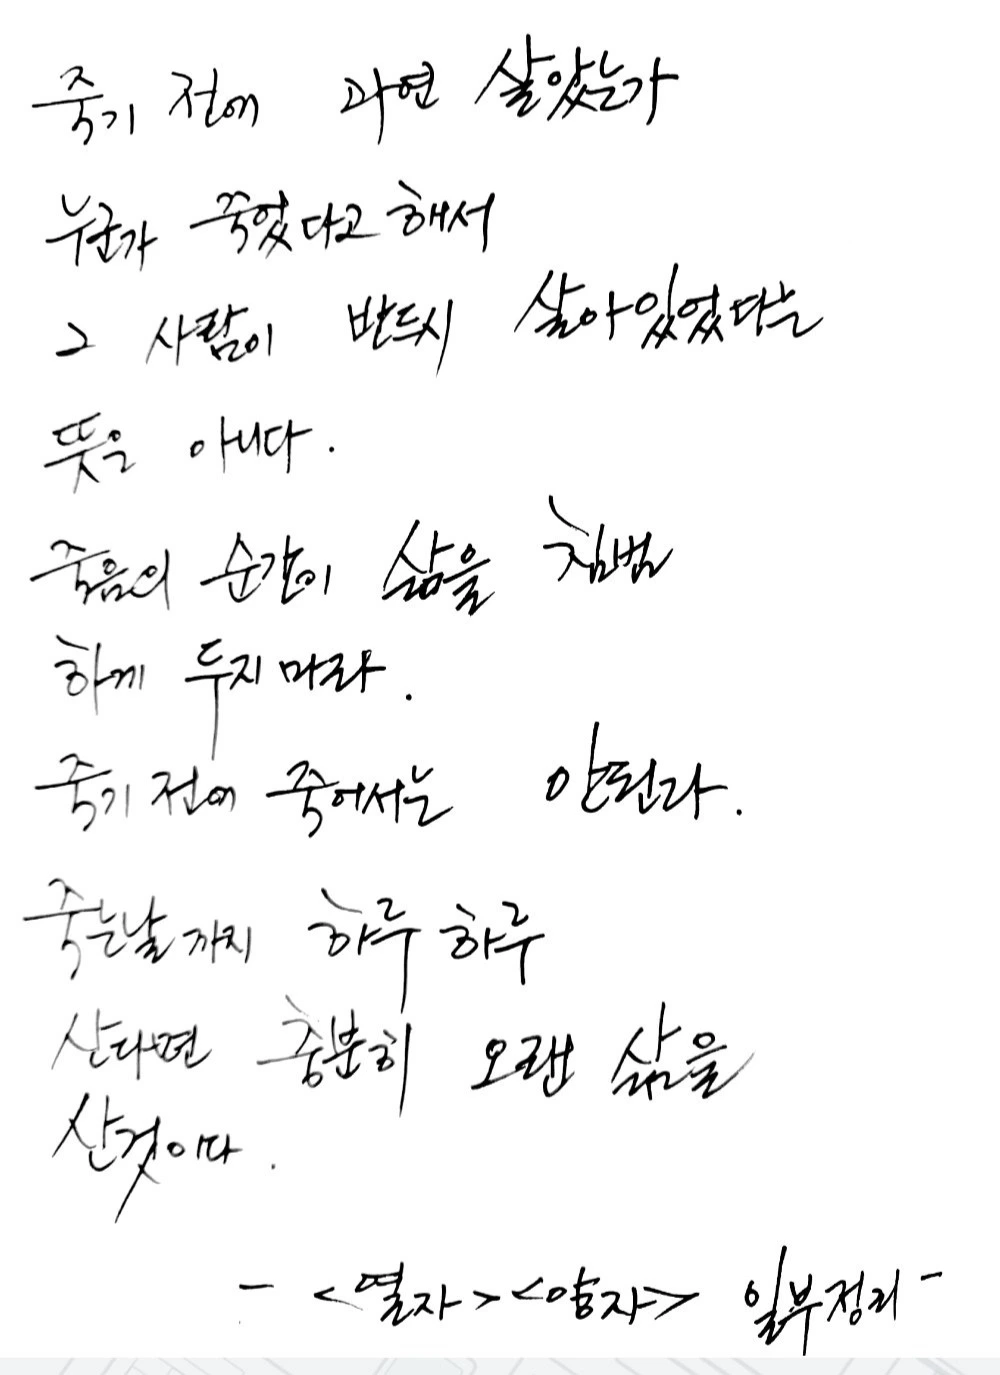 죽기 전에 과연 살았는가
누군가 죽었다고 해서
그 사람이 반드시 살아있었다는
뜻은 아니다.
죽음의 순간이 삶을 침범
하게 두지 마라.
죽기 전에 죽어서는 안된다.
죽는날까지 하루 하루
산다면 충분히 오랜 삶을
산것이다.
- <열자> <양자> 일부정리 -